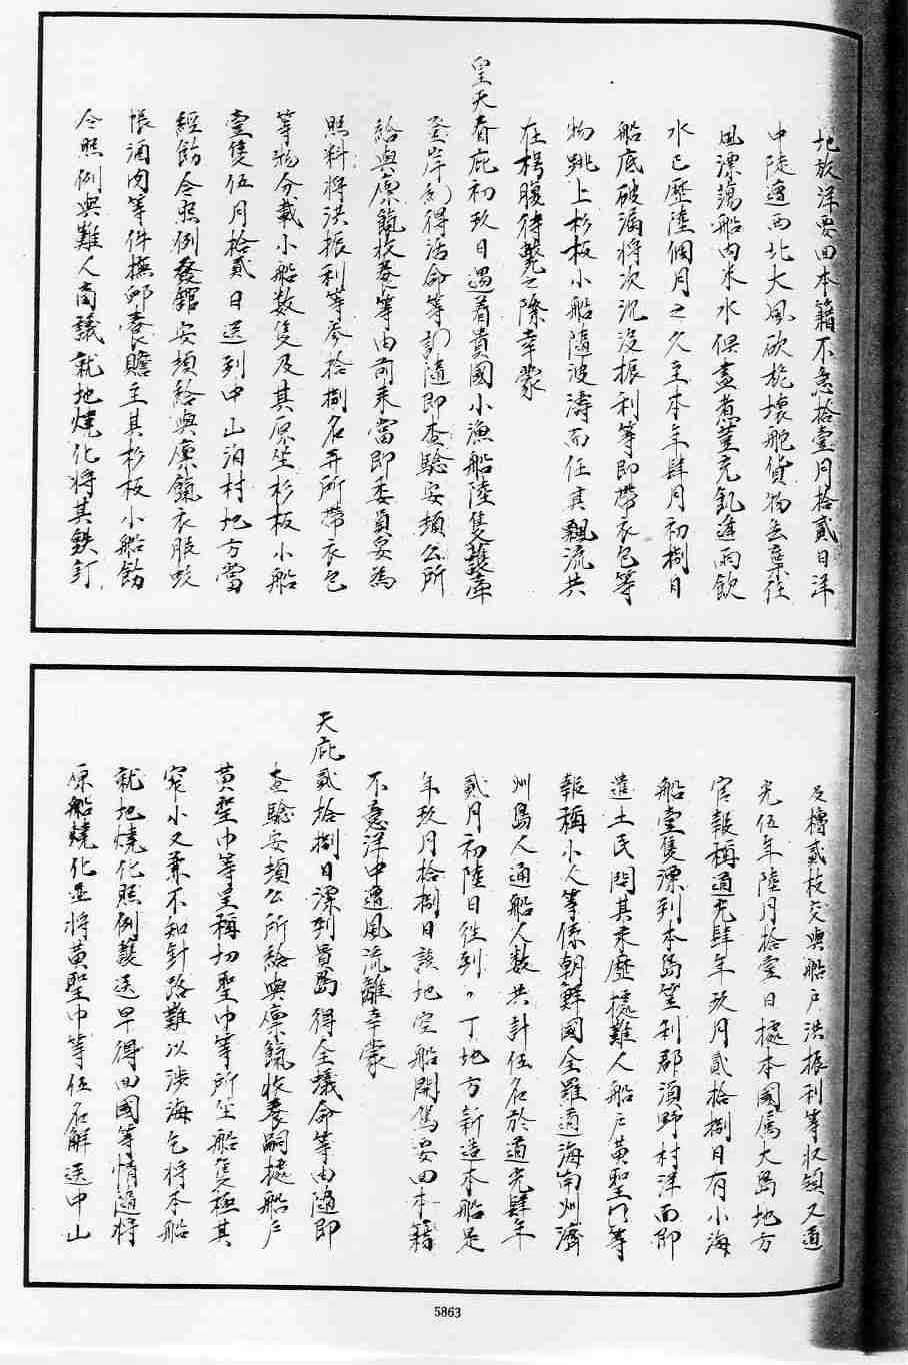 地放洋要回本籍不意拾壹月拾貳日洋
中陡遭西北大風砍桅壞舵貨物丟棄任
風漂蕩船內米水俱盡煮荳充飢逢雨飲
水已歷陸個月之久至本年肆月初捌日
船底破漏將次沉沒振利等即帶衣包等
物跳上杉板小船隨波濤而任其飄流共
在枵腹待斃之際幸蒙
皇天眷庇初玖日遇着貴國小漁船陸隻護牽
登岸得活命等詞隨即查驗安頓公所
給與廩餼收養等由前來當即委員妥為
照料將洪振利等參拾捌名并所帶衣包
等物分載小船數隻及其原坐杉板小船
壹隻伍月拾貳日送到中山泊村地方當
經飭令照例發館安頓給與廩餼衣服蚊
帳酒肉等件撫卹養贍主其杉板小船飭
令照例與難人商議就地燒化將其鉄釘
及檣貳枝交與船戶洪振利等收領又道
光伍年陸月拾壹日據本國屬大島地方
官報稱道光肆年玖月貳拾捌日有小海
船壹隻漂到本島笠利郡須野村洋面即
遣土民問其來歷據難人船戶黃聖巾等
報稱小人等係朝鮮國全羅道海南州濟
州島人通船人數共計伍名於道光肆年
貳月初陸日往到〃丁地方新造本船是
年玖月拾捌日該地空船開駕要回本籍
不意洋中遭風流離幸蒙
天庇貳拾捌日漂到貴島得全議命等由隨即
查驗安頓公所給與廩餼收養嗣據船戶
黃聖巾等呈稱切聖巾等所坐船隻極其
窄小又兼不知針路難以涉海乞將本船
就地燒化照例護送早得回國等情隨將
原船燒化並將黃聖中等伍名解送中山
5863